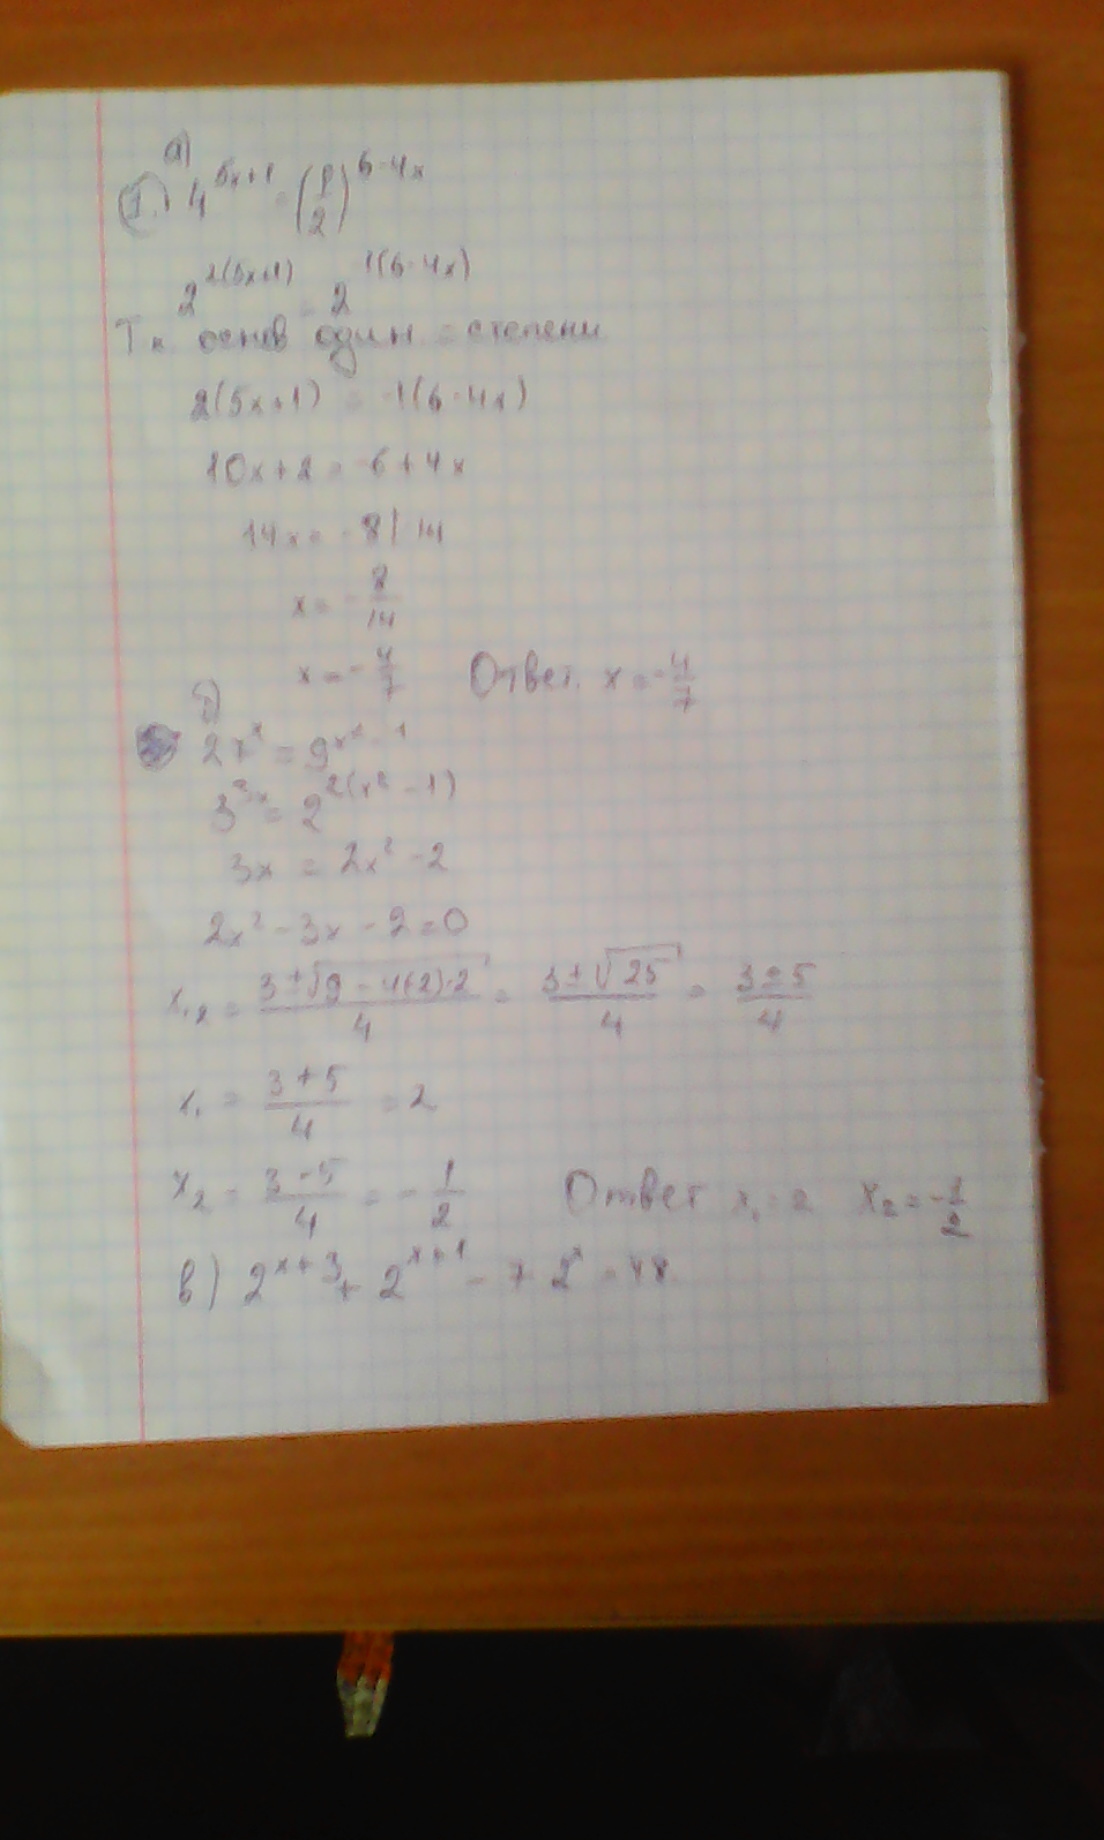 а)
1. 4^{5x+1} = (1/2)^{6-4x}
2^{2(5x+1)} = 2^{-1(6-4x)}
Тк основ один = степени
2(5x+1) = -1(6-4x)
10x+2 = -6+4x
14x = -8 | 14
x = -8/14
x = -4/7 Ответ. x = -4/7
б)
27^x = 9^{x²-1}
3^{3x} = 2^{2(x²-1)}
3x = 2x²-2
2x²-3x-2=0
x₁,₂ = (3±√(9-4(-2)·2))/4 = (3±√25)/4 = (3±5)/4
x₁ = (3+5)/4 = 2
x₂ = (3-5)/4 = -1/2 Ответ x₁=2 x₂=-1/2
в) 2^{x+3} + 2^{x+1} - 7·2^x = 48